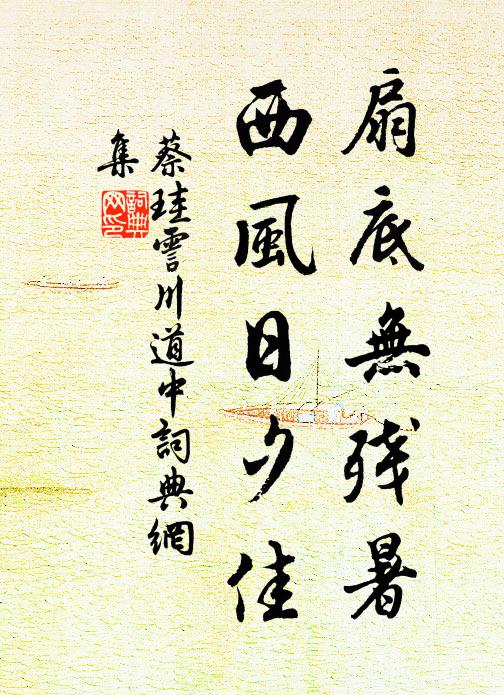 扇底無残暑
西風日夕佳
蔡珪雲川道中詞典網
集
詞典
网印